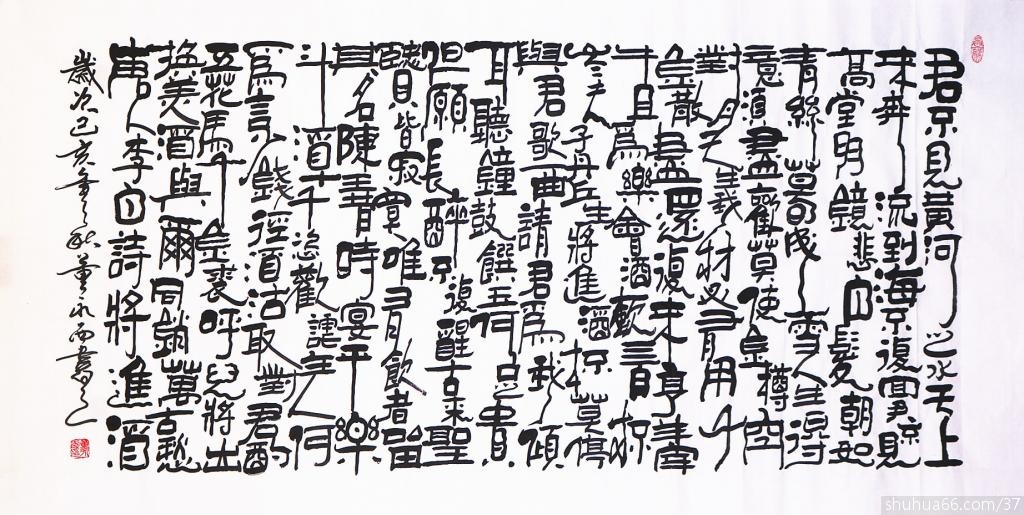 君不見黃河之水天上
來奔流到海不復回君不見
高堂明鏡悲白髮朝如
青絲暮成雪人生得
意須盡歡莫使金樽空
對月天生我材必有用千
金散盡還復來烹羊
牛且為樂會須飲三百杯
岑夫子丹丘生將進酒杯莫停
與君歌一曲請君為我傾
耳聽鐘鼓饌玉何足貴
但願長醉不復醒古來聖
賢皆寂寞唯有飲者留
其名陳王昔時宴平樂
斗酒十千恣歡謔主人何
為言少錢徑須沽取對君酌
五花馬千金裘呼兒將出
換美酒與爾同銷萬古愁
唐人李白詩將進酒
歲次己亥年之秋董永西書之
shuhua66.com/37